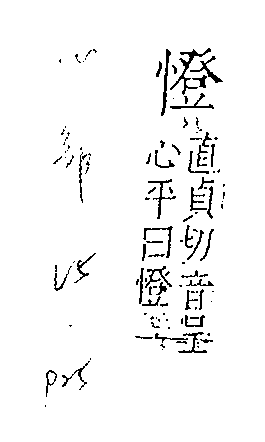 憕
直貞切音呈
心平曰憕
心部
V5.
P25